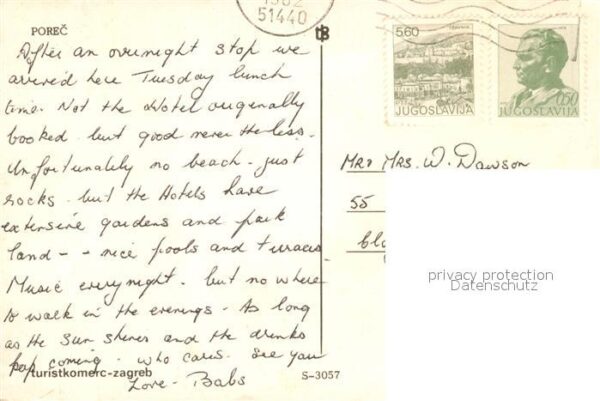 POREČ
After an overnight stop we
arrived here Tuesday lunch
time. Not the Hotel origenally
booked but good never the less.
Unfortunately no beach - just
rocks but the Hotels have
extensive gardens and park
land - - nice pools and terraces
Music everynight. but no where
to walk in the evenings. As long
as the sun shines and the drinks
keep coming. who cares. See you
Love - Babs
turistkomerc-zagreb
S-3057
1982
51440
5.60
JUGOSLAVIJA
0,50
JUGOSLAVIJA
Mr & Mrs. W. Dawson
55
privacy protection
Datenschutz